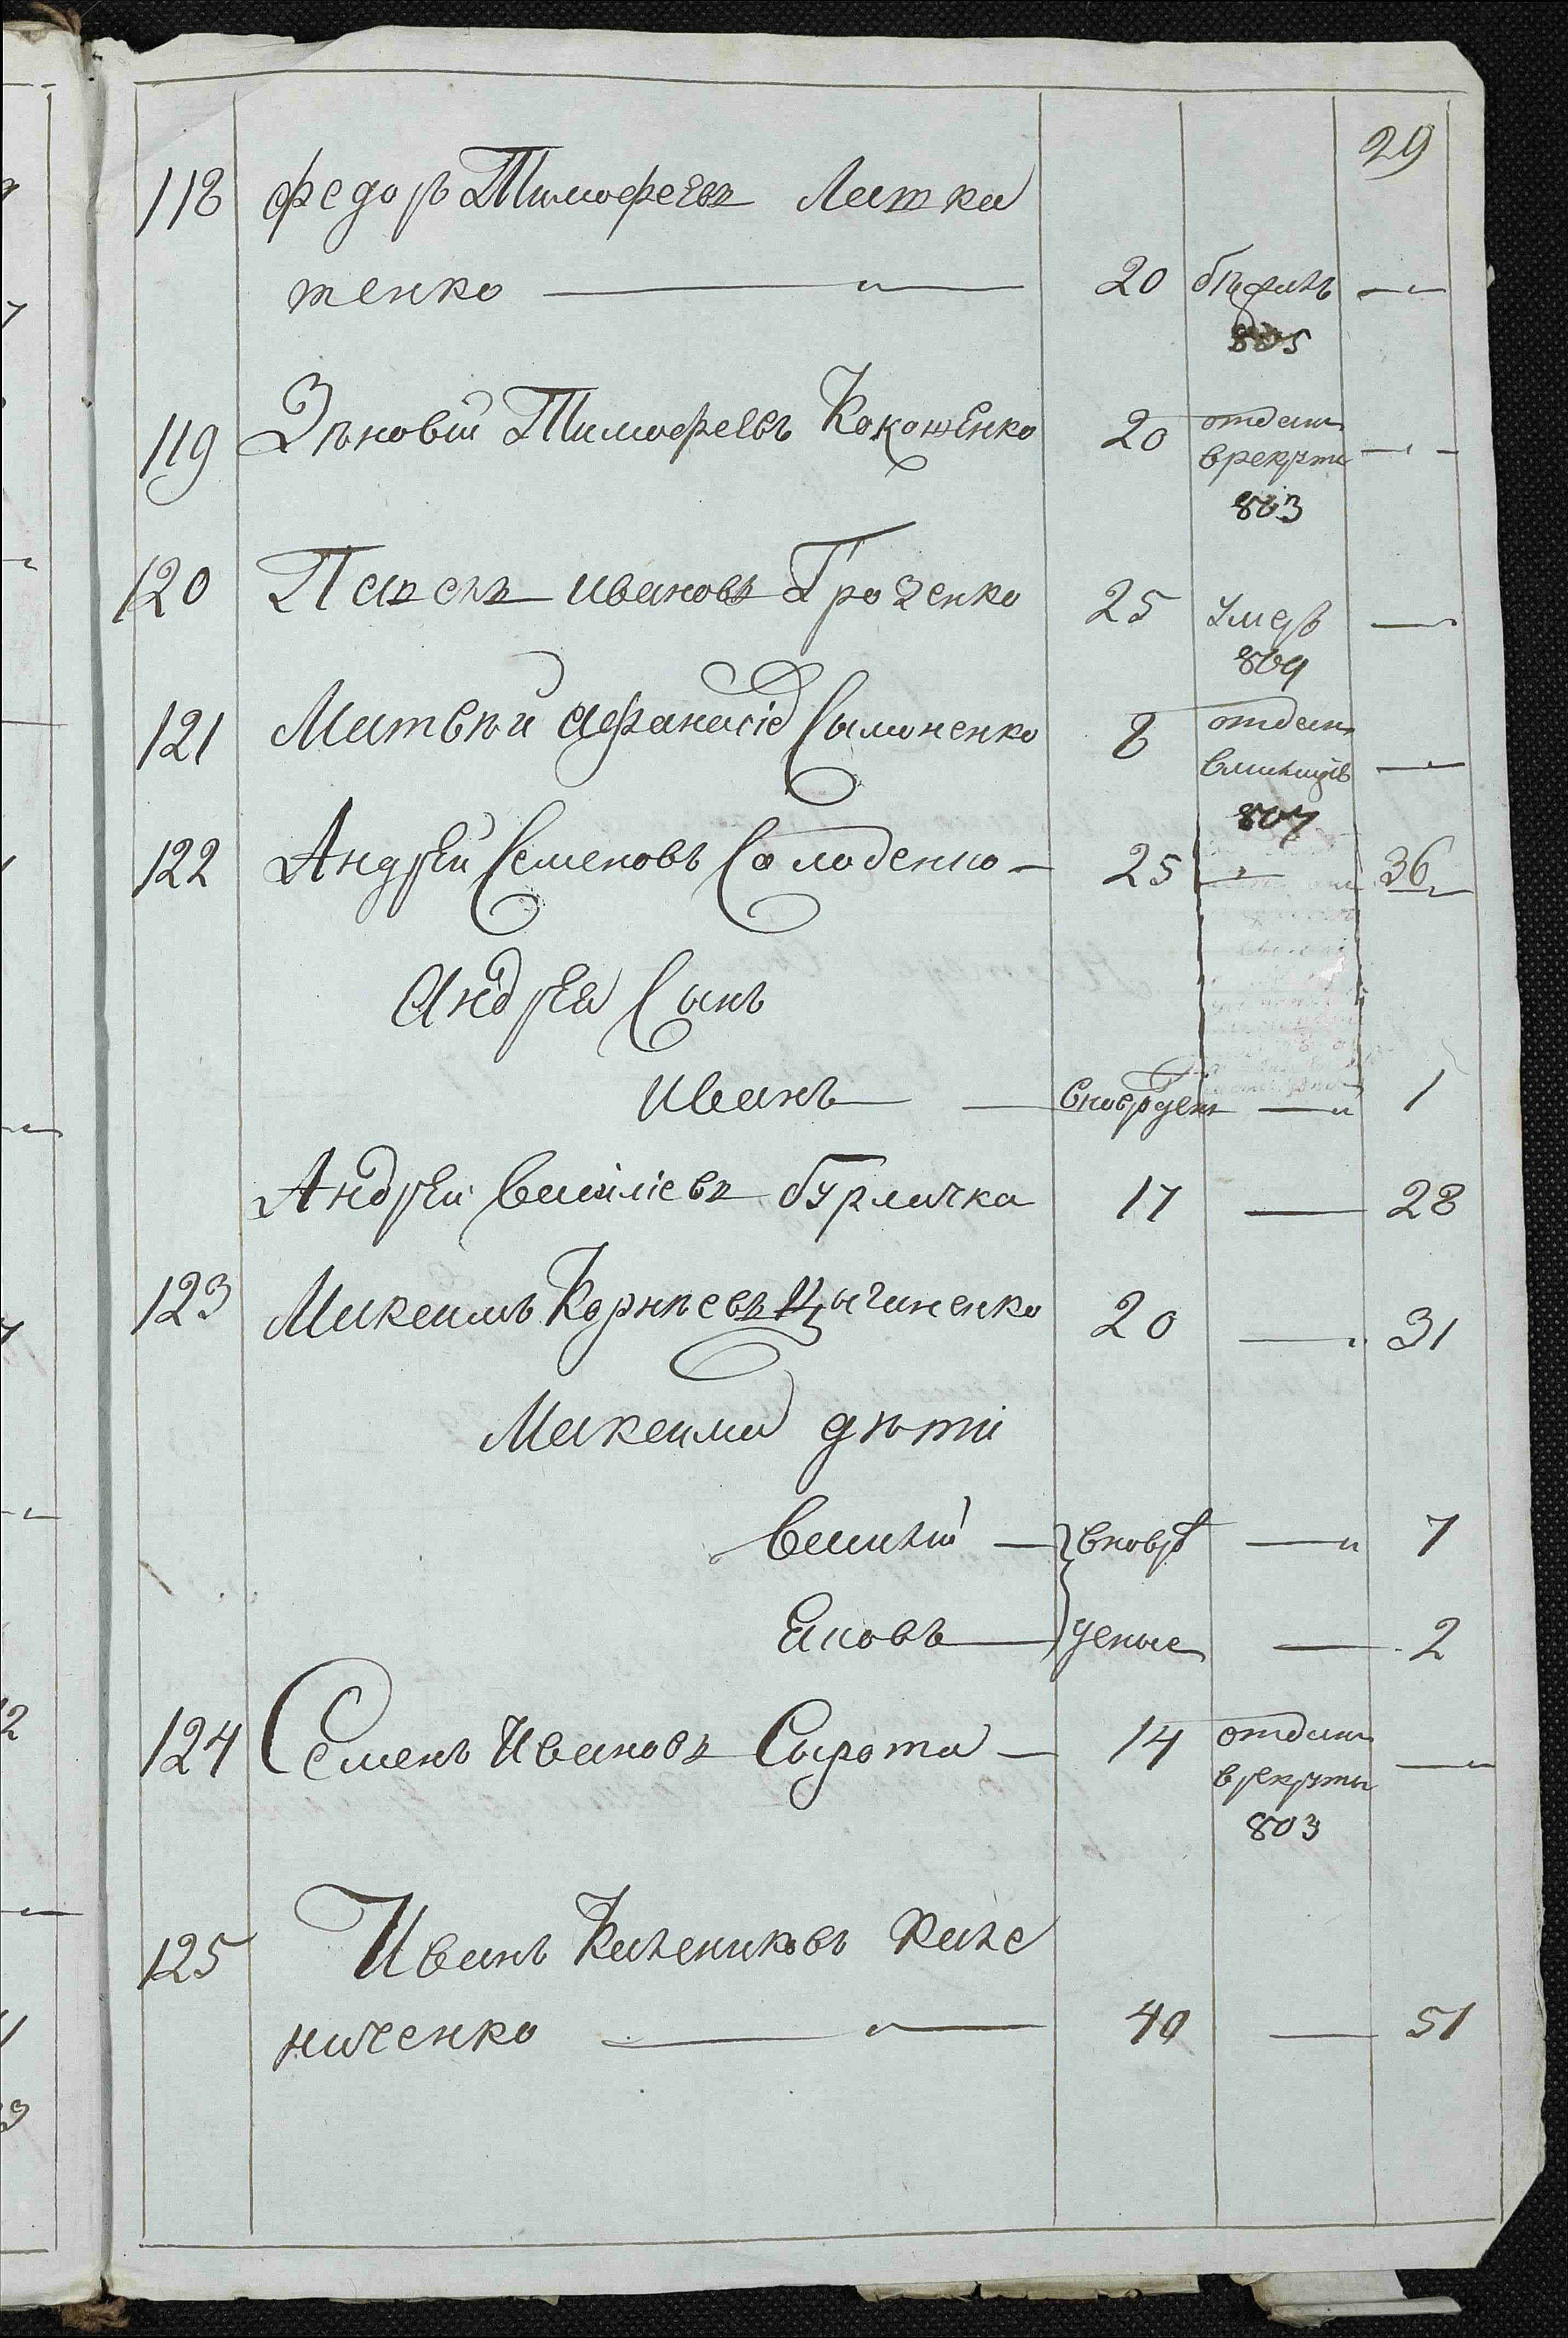 29
118 федоръ Тимофеевъ Латка
тенко 20 бѣжалъ
805
119 Зѣновий Тимофеевъ Кокошенко 20 отданъ
врекруты
803
120 Павелъ ивановъ Грозенко 25 умеръ
809
121 Матвѣй афанасіе Сымоненко 8 отданъ
вмилицію
807
122 Андрей Семеновъ Солоденко 25 36
Андрея Сынъ
Иванъ вноврден 1
Андрей василіевъ бурлачка 17 28
123 Максимъ Корнѣевъ Цыганенко 20 31
Максима дѣти
василий вновро 7
Яковъ дение 2
124 Семенъ Ивановъ Сырота 14 отданъ
врекруты
803
125 Иванъ Калениковъ кале
ниченко 40 51